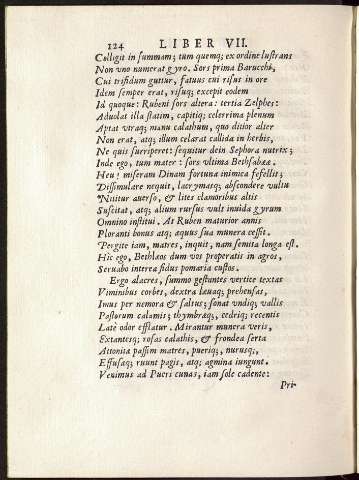 124 LIBER VII.
Colligit in summam; tum quemq; ex ordine lustrans
Non vno numerat gyro. Sors prima Baruccha,
Cui trifidum guttur, fatuus cui risus in ore
Idem semper erat, risuq; excepit eodem
Id quoque: Rubeni sors altera: tertia Zelphes:
Aduolat illa statim, capitiq; celerrima plenum
Aptat vtraq; manu calathum, quo ditior alter
Non erat, atq; illum celarat callida in herbis,
Ne quis surriperet: sequitur dein Sephora nutrix;
Inde ego, tum mater: sors vltima Bethsabææ.
Heu! miseram Dinam fortuna inimica fefellit;
Dissimulare nequit, lacrymasq; abscondere vultu
Nititur auerso, & lites clamoribus altis
Suscitat, atq; alium rursus vult inuida gyrum
Omnino institui. At Ruben maturior annis
Ploranti bonus atq; æquus sua munera cessit.
Pergite iam, matres, inquit, nam semita longa est.
Hic ego, Bethlæos dum vos properatis in agros,
Seruabo interea fidus pomaria custos.
Ergo alacres, summo gestantes vertice textas
Viminibus corbes, dextra læuaq; prehensas,
Imus per nemora & saltus; sonat vndiq; vallis
Pastorum calamis; thymbræq;, cedriq; recentis
Latè odor efflatur. Mirantur munera veris,
Extantesq; rosas calathis, & frondea serta
Attonitæ passim matres, pueriq;, nurusq;,
Effusæq; runnt pagis, atq; agmina iungunt.
Venimus ad Pueri cunas, iam sole cadente:
Pri-